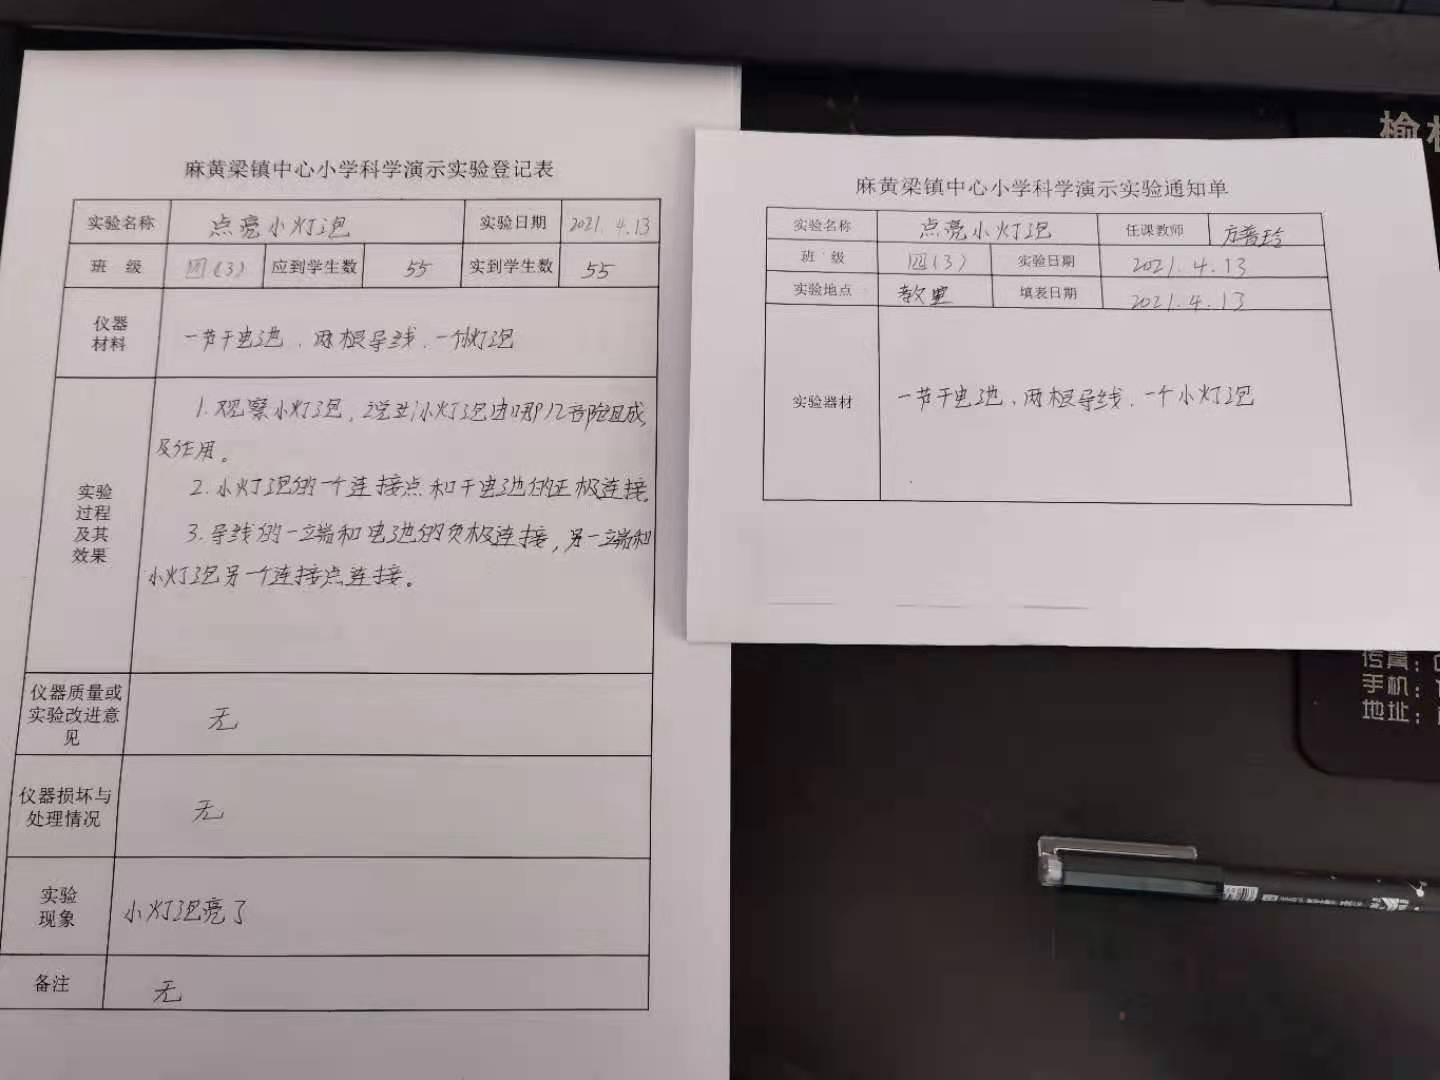 麻黄梁镇中心小学科学演示实验登记表
实验名称 点亮小灯泡 实验日期 2021.4.13
班 级 四(3) 应到学生数 55 实到学生数 55
仪器
材料
一节干电池、两根导线、一个小灯泡
实验
过程
及其
效果
1.观察小灯泡,说出小灯泡由哪几部份组成
及作用。
2.小灯泡的一个连接点和干电池的正极连接。
3.导线的一端和电池的负极连接,另一端和
小灯泡另一个连接点连接。
仪器质量或
实验改进意
见
无
仪器损坏与
处理情况
无
实验
现象
小灯泡亮了
备注 无
麻黄梁镇中心小学科学演示实验通知单
实验名称 点亮小灯泡 任课教师 方普玲
班 级 四(3) 实验日期 2021.4.13
实验地点 教室 填表日期 2021.4.13
实验器材 一节干电池、两根导线、一个小灯泡
榆
传真:
手机:
地址: